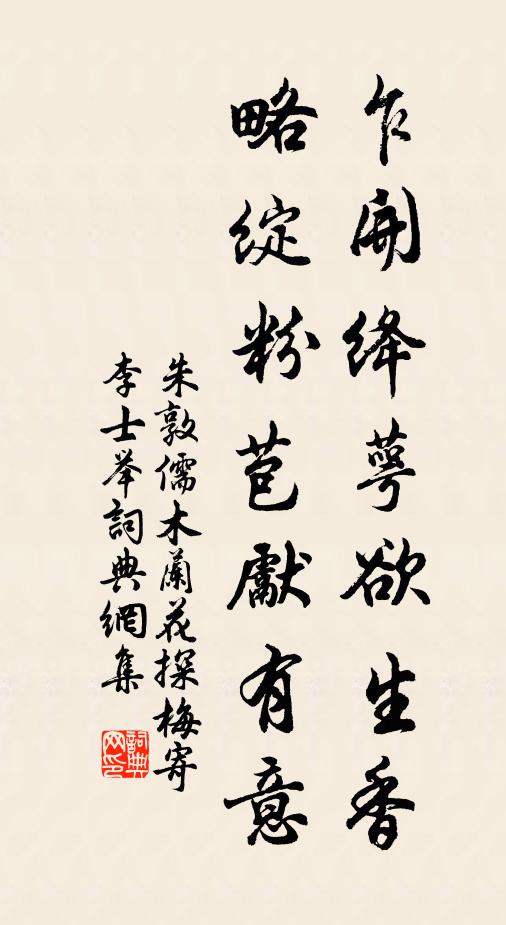 乍開绛萼欲生香
略綻粉苞獻有意
朱敦儒木蘭花探梅寄
李士举詞典網集
詞典
网印